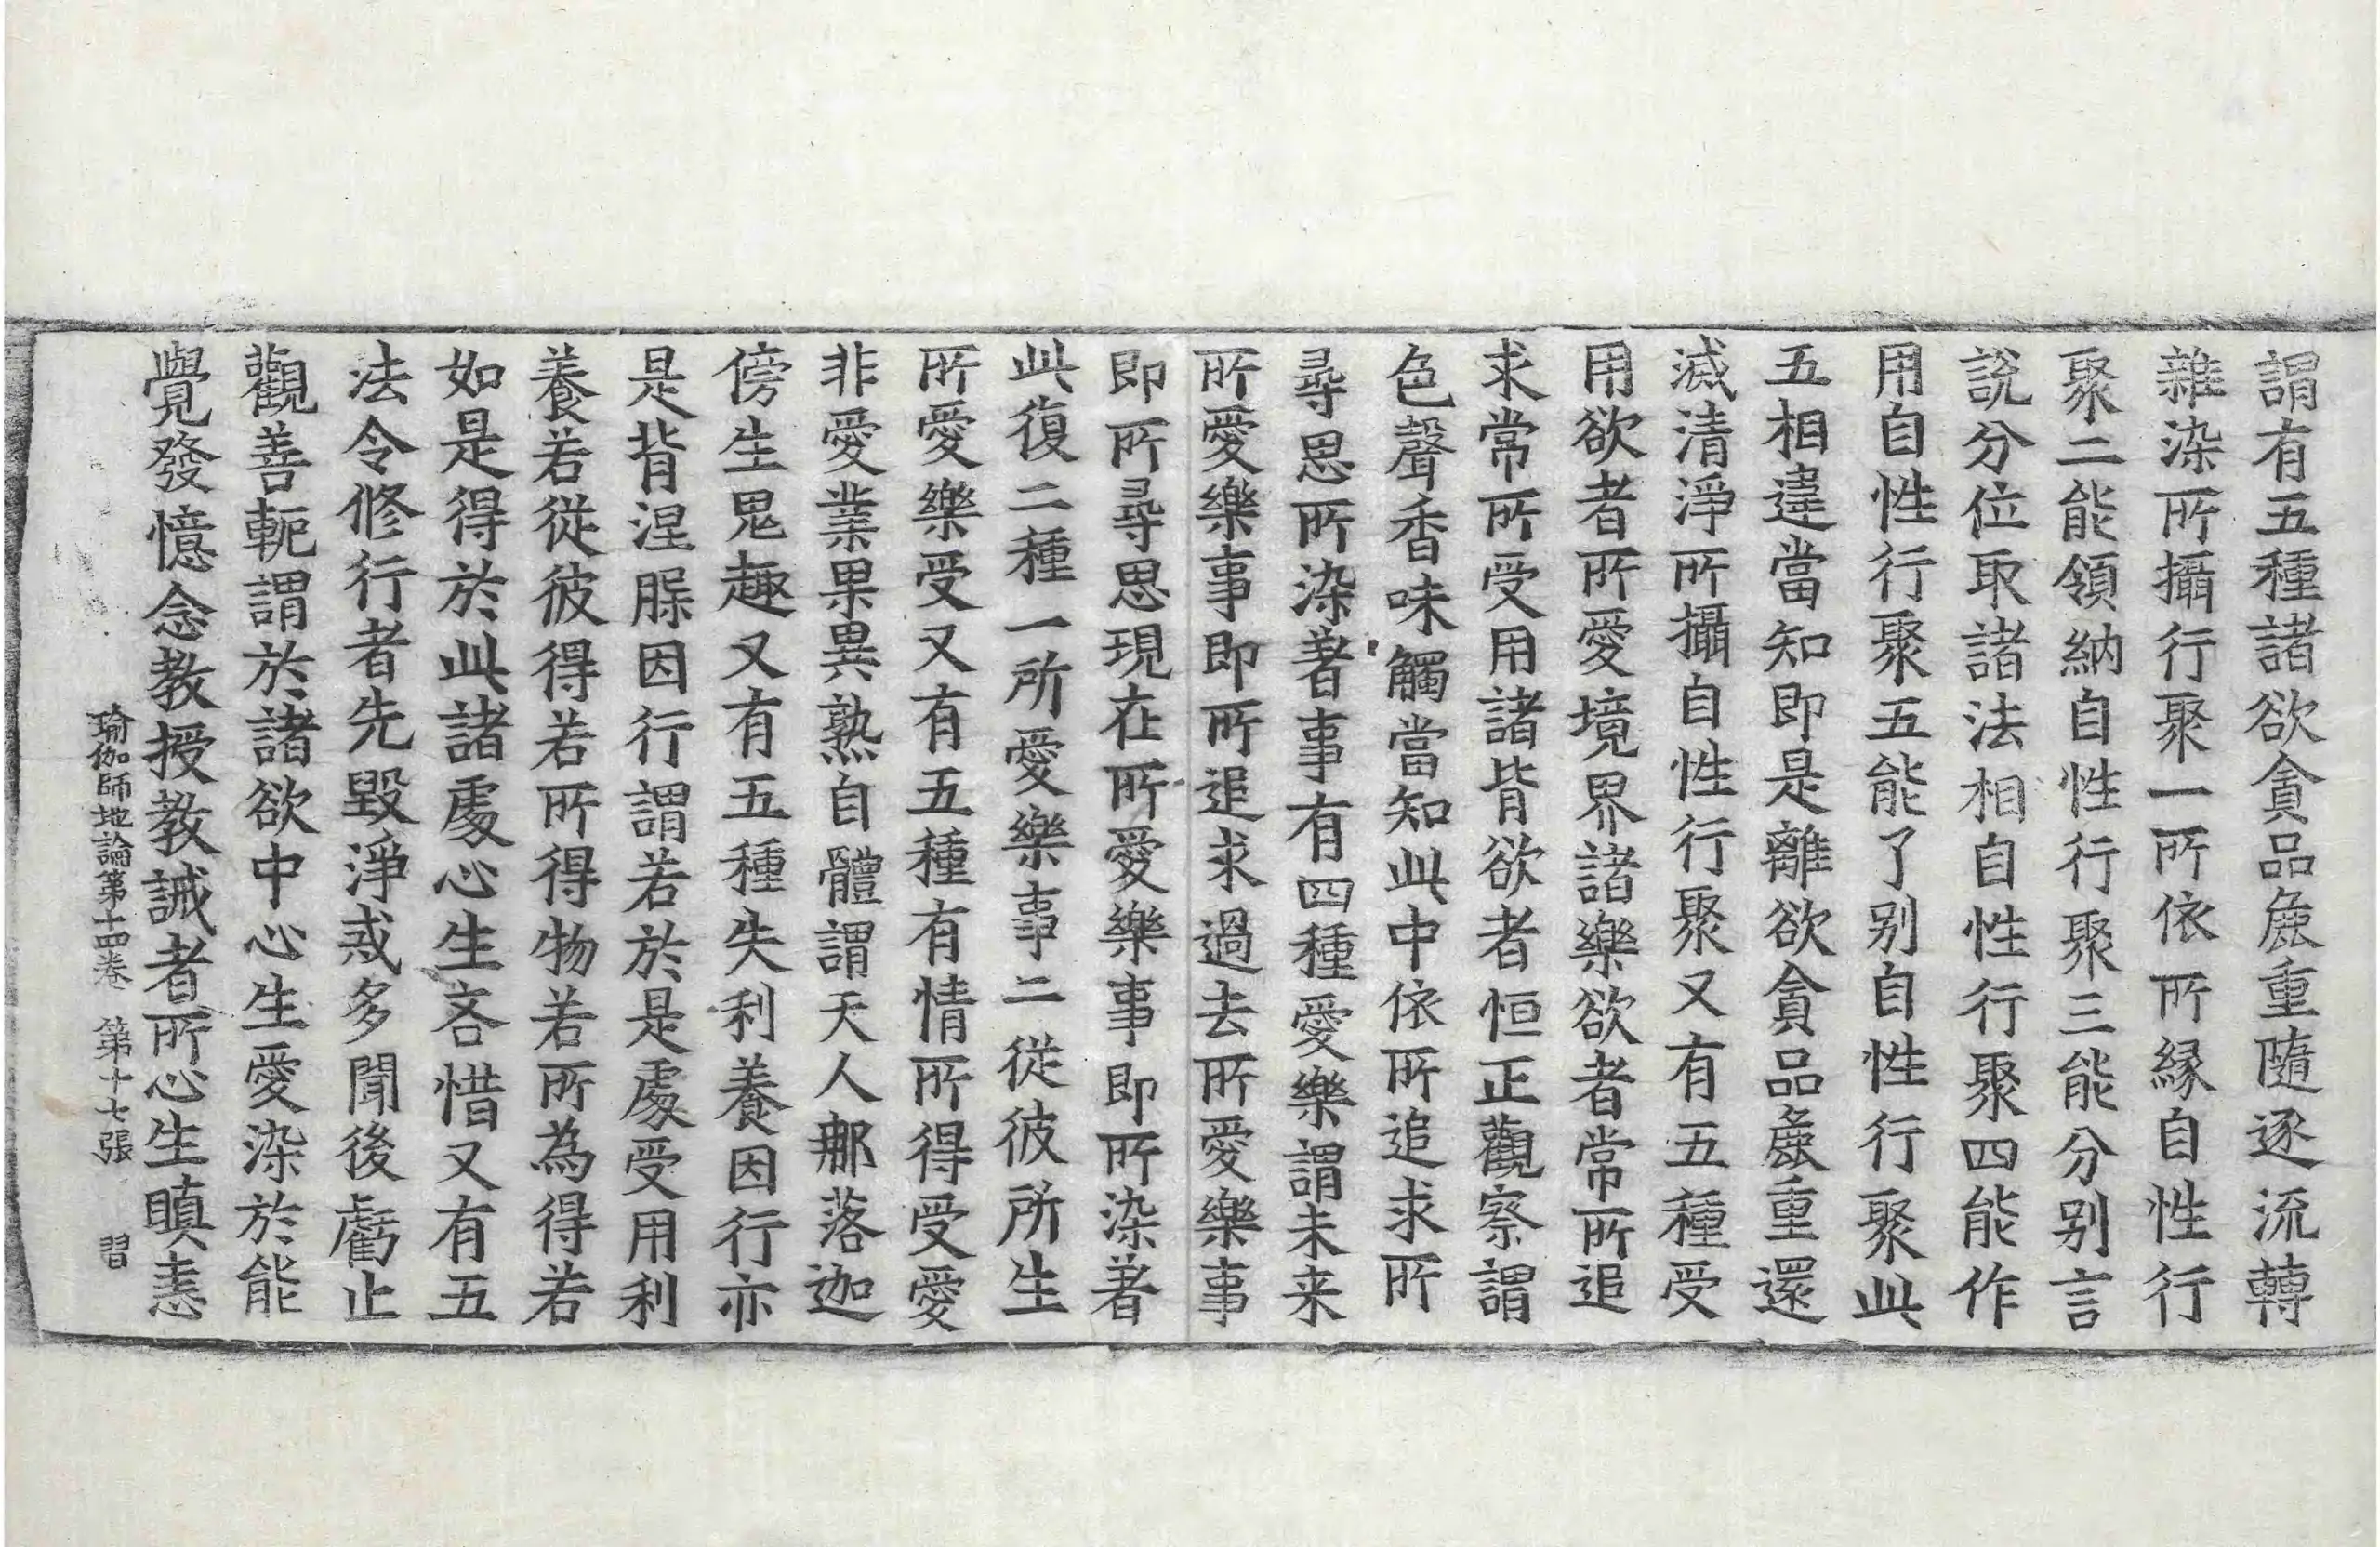 謂有五種諸欲貪品麁重隨逐流轉
雜染所攝行聚一所依所緣自性行
聚二能領納自性行聚三能分別言
說分位取諸法相自性行聚四能作
用自性行聚五能了別自性行聚此
五相違當知即是離欲貪品麁重還
滅清淨所攝自性行聚又有五種受
用欲者所愛境界諸樂欲者常所追
求常所受用諸背欲者恒正觀察謂
色聲香味觸當知此中依所追求所
尋思所染著事有四種愛樂謂未来
所愛樂事即所追求過去所愛樂事
即所尋思現在所愛樂事即所染著
此復二種一所愛樂事二從彼所生
所愛樂受又有五種有情所得受愛
非愛業果異熟自體謂天人那落迦
傍生鬼趣又有五種失利養因行亦
是背涅脲因行謂若於是處受用利
養若從彼得若所得物若所為得若
如是得於此諸處心生吝惜又有五
法令修行者先毀淨戒多聞後虧止
觀善軛謂於諸欲中心生愛染於能
覺發憶念教授教誡者所心生瞋恚
瑜伽師地論第十四卷　第十七張　習